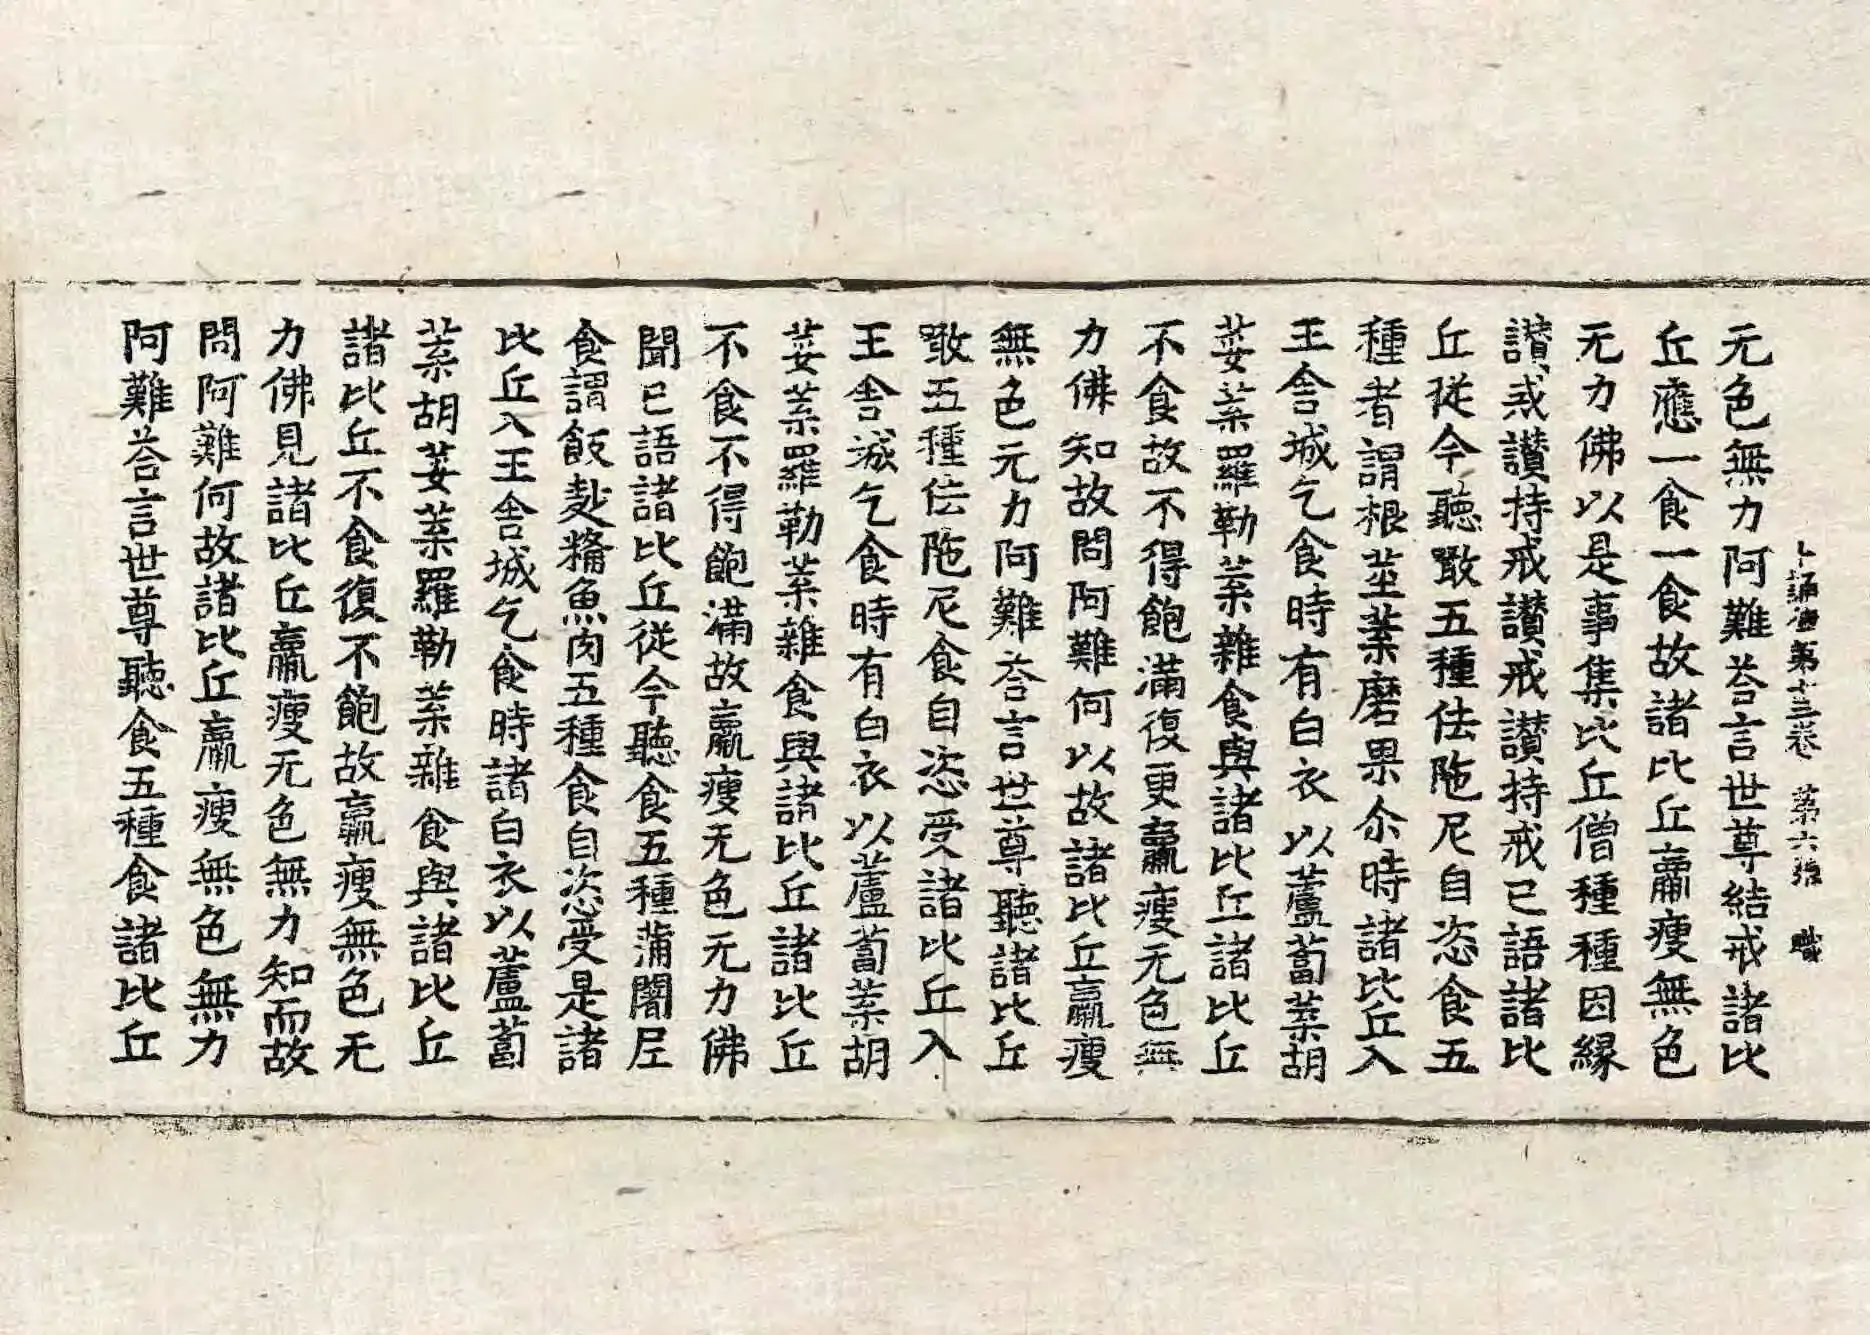 十誦律第十三卷 第六張 職
无色無力阿難荅言世尊結戒諸比
丘應一食一食故諸比丘羸瘦無色
无力佛以是事集比丘僧種種因緣
讃戒讃持戒讃戒讃持戒已語諸比
丘從今聽噉五種佉陁尼自恣食五
種者謂根莖葉磨果尒時諸比丘入
王舍城乞食時有白衣以蘆蔔葉胡
荽葉羅勒葉雜食與諸比丘諸比丘
不食故不得飽滿復更羸瘦无色無
力佛知故問阿難何以故諸比丘羸瘦
無色无力阿難荅言世尊聽諸比丘
噉五種佉陁尼食自恣受諸比丘入
王舍城乞食時有白衣以蘆蔔葉胡
荽葉羅勒葉雜食與諸比丘諸比丘
不食不得飽滿故羸瘦无色无力佛
聞已語諸比丘從今聽食五種蒲闍尼
食謂飯麨糒魚肉五種食自恣受是諸
比丘入王舍城乞食時諸白衣以蘆蔔
葉胡荽葉羅勒葉雜食與諸比丘
諸比丘不食復不飽故羸瘦無色无
力佛見諸比丘羸瘦无色無力知而故
問阿難何故諸比丘羸瘦無色無力
阿難荅言世尊聽食五種食諸比丘